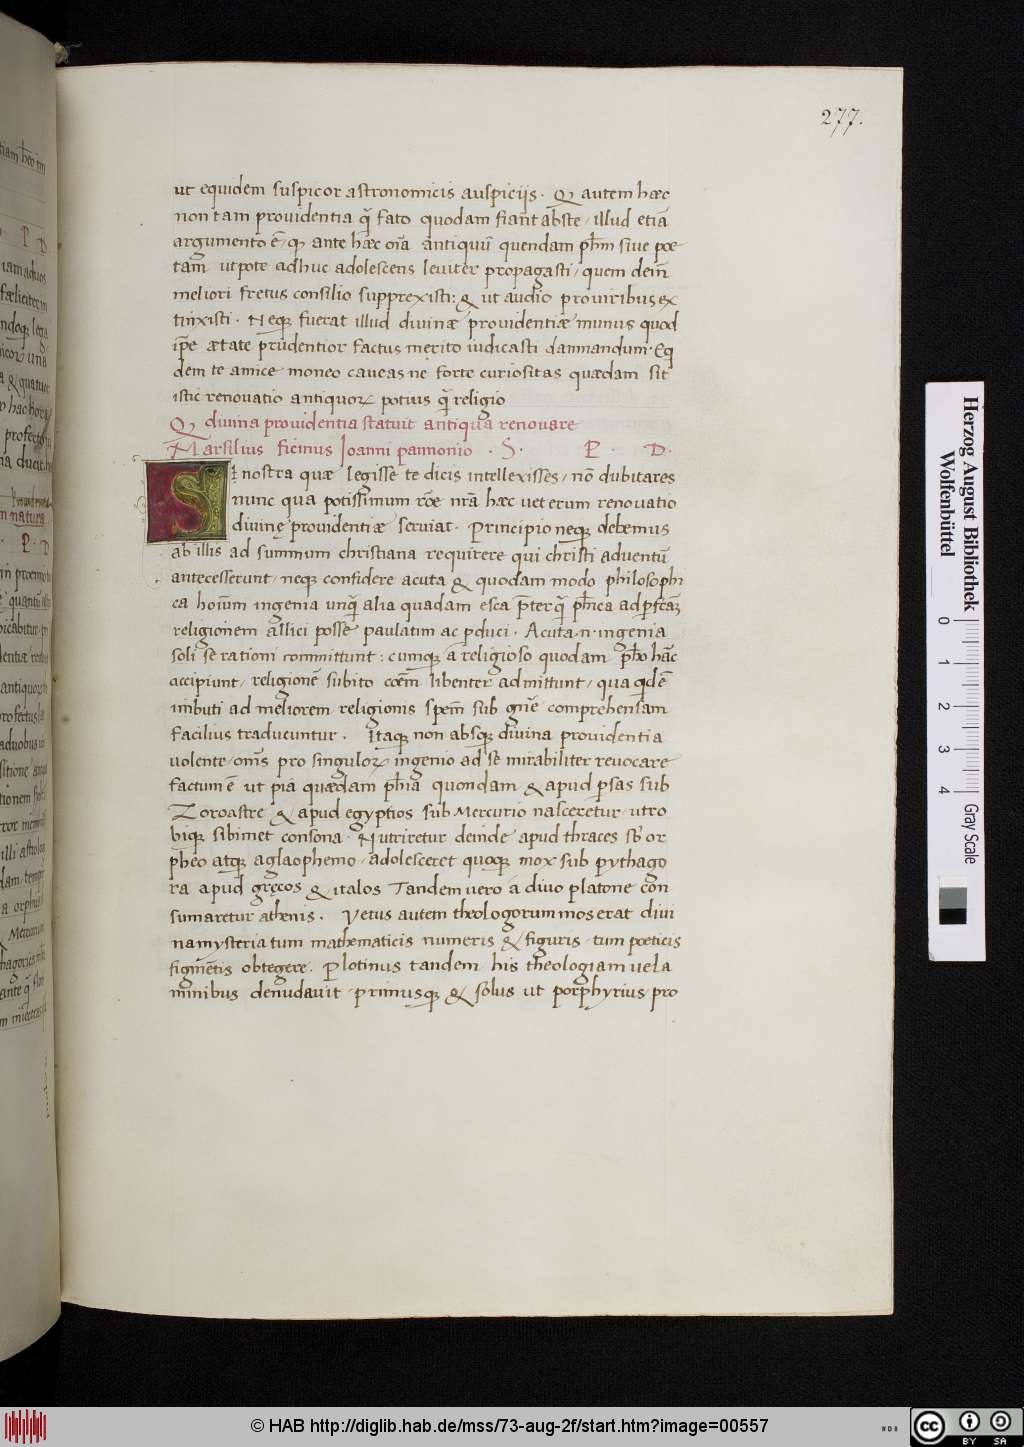 277.
ut equidem suspicor astronomicis auspicijs. Q autem hæc
non tam prouidentia q̃ fato quodam fiant abste, illud etiã
argumento ē, ꝙ ante hæc oĩa antiquũ quendam phm siue poe
tam utpote adhuc adolescens leuiter propagasti, quem dein̄
meliori fretus consilio suppræxisti: & ut audio pro uiribus ex
tinxisti. Neqꝫ fuerat illud diuinæ prouidentiæ munus quod
ip̄e ætate prudentior factus merito iudicasti damnandum. Eq
dem te amice moneo caueas ne forte curiositas quædam sit
istic renouatio antiquoꝝ potius q̃ religio
Q diuina prouidentia statuit antiqua renouare
Marsilius ficinus Ioanni pannonio . S. P . D.
SI nostra quæ legisse te dicis intellexisses, nō dubitares
nunc qua potissimum rōe nr̃a hæc ueterum renouatio
diuinę prouidentiæ seruiat. Principio neqꝫ debemus
ab illis ad summum christiana requirere qui christi aduentũ
antecesserunt, neqꝫ confidere acuta & quodam modo philosophi
ca hoĩum ingenia unq̃ alia quadam esca p̄terq̃ ph̄ica ad pfcãꝫ
religionem allici posse paulatim ac ꝑduci. Acuta .n. ingenia
soli se rationi committunt: cumqꝫ a religioso quodam ph̄o hãc
accipiunt, religionē subito cōem libenter admittunt, qua qdē
imbuti ad meliorem religionis spem̄ sub gn̄e comprehensam
facilius traducuntur. Itaqꝫ non absqꝫ diuina prouidentia
uolente, om̄s pro singuloꝝ ingenio ad se mirabiliter reuocare
factum ē ut pia quædam ph̄ia quondam & apud ꝑsas sub
Zoroastre & apud egyptios sub Mercurio nasceretur, utro
biqꝫ sibimet consona. Nutriretur deinde apud thraces sb̄ or
pheo atqꝫ aglaophemo, adolesceret quoqꝫ mox sub pythago
ra apud gręcos & italos Tandem uero a diuo platone con
sumaretur athenis. Vetus autem theologorum mos erat diui
na mysteria tum mathematicis numeris & figuris, tum poeticis
figmētis obtegere. Plotinus tandem his theologiam uela
minibus denudauit, primusqꝫ & solus ut porphyrius, pro
Herzog August Bibliothek
Wolfenbüttel
0 1 2 3 4 Gray Scale
© HAB http://diglib.hab.de/mss/73-aug-2f/start.htm?image=00557
WDB
cc BY SA